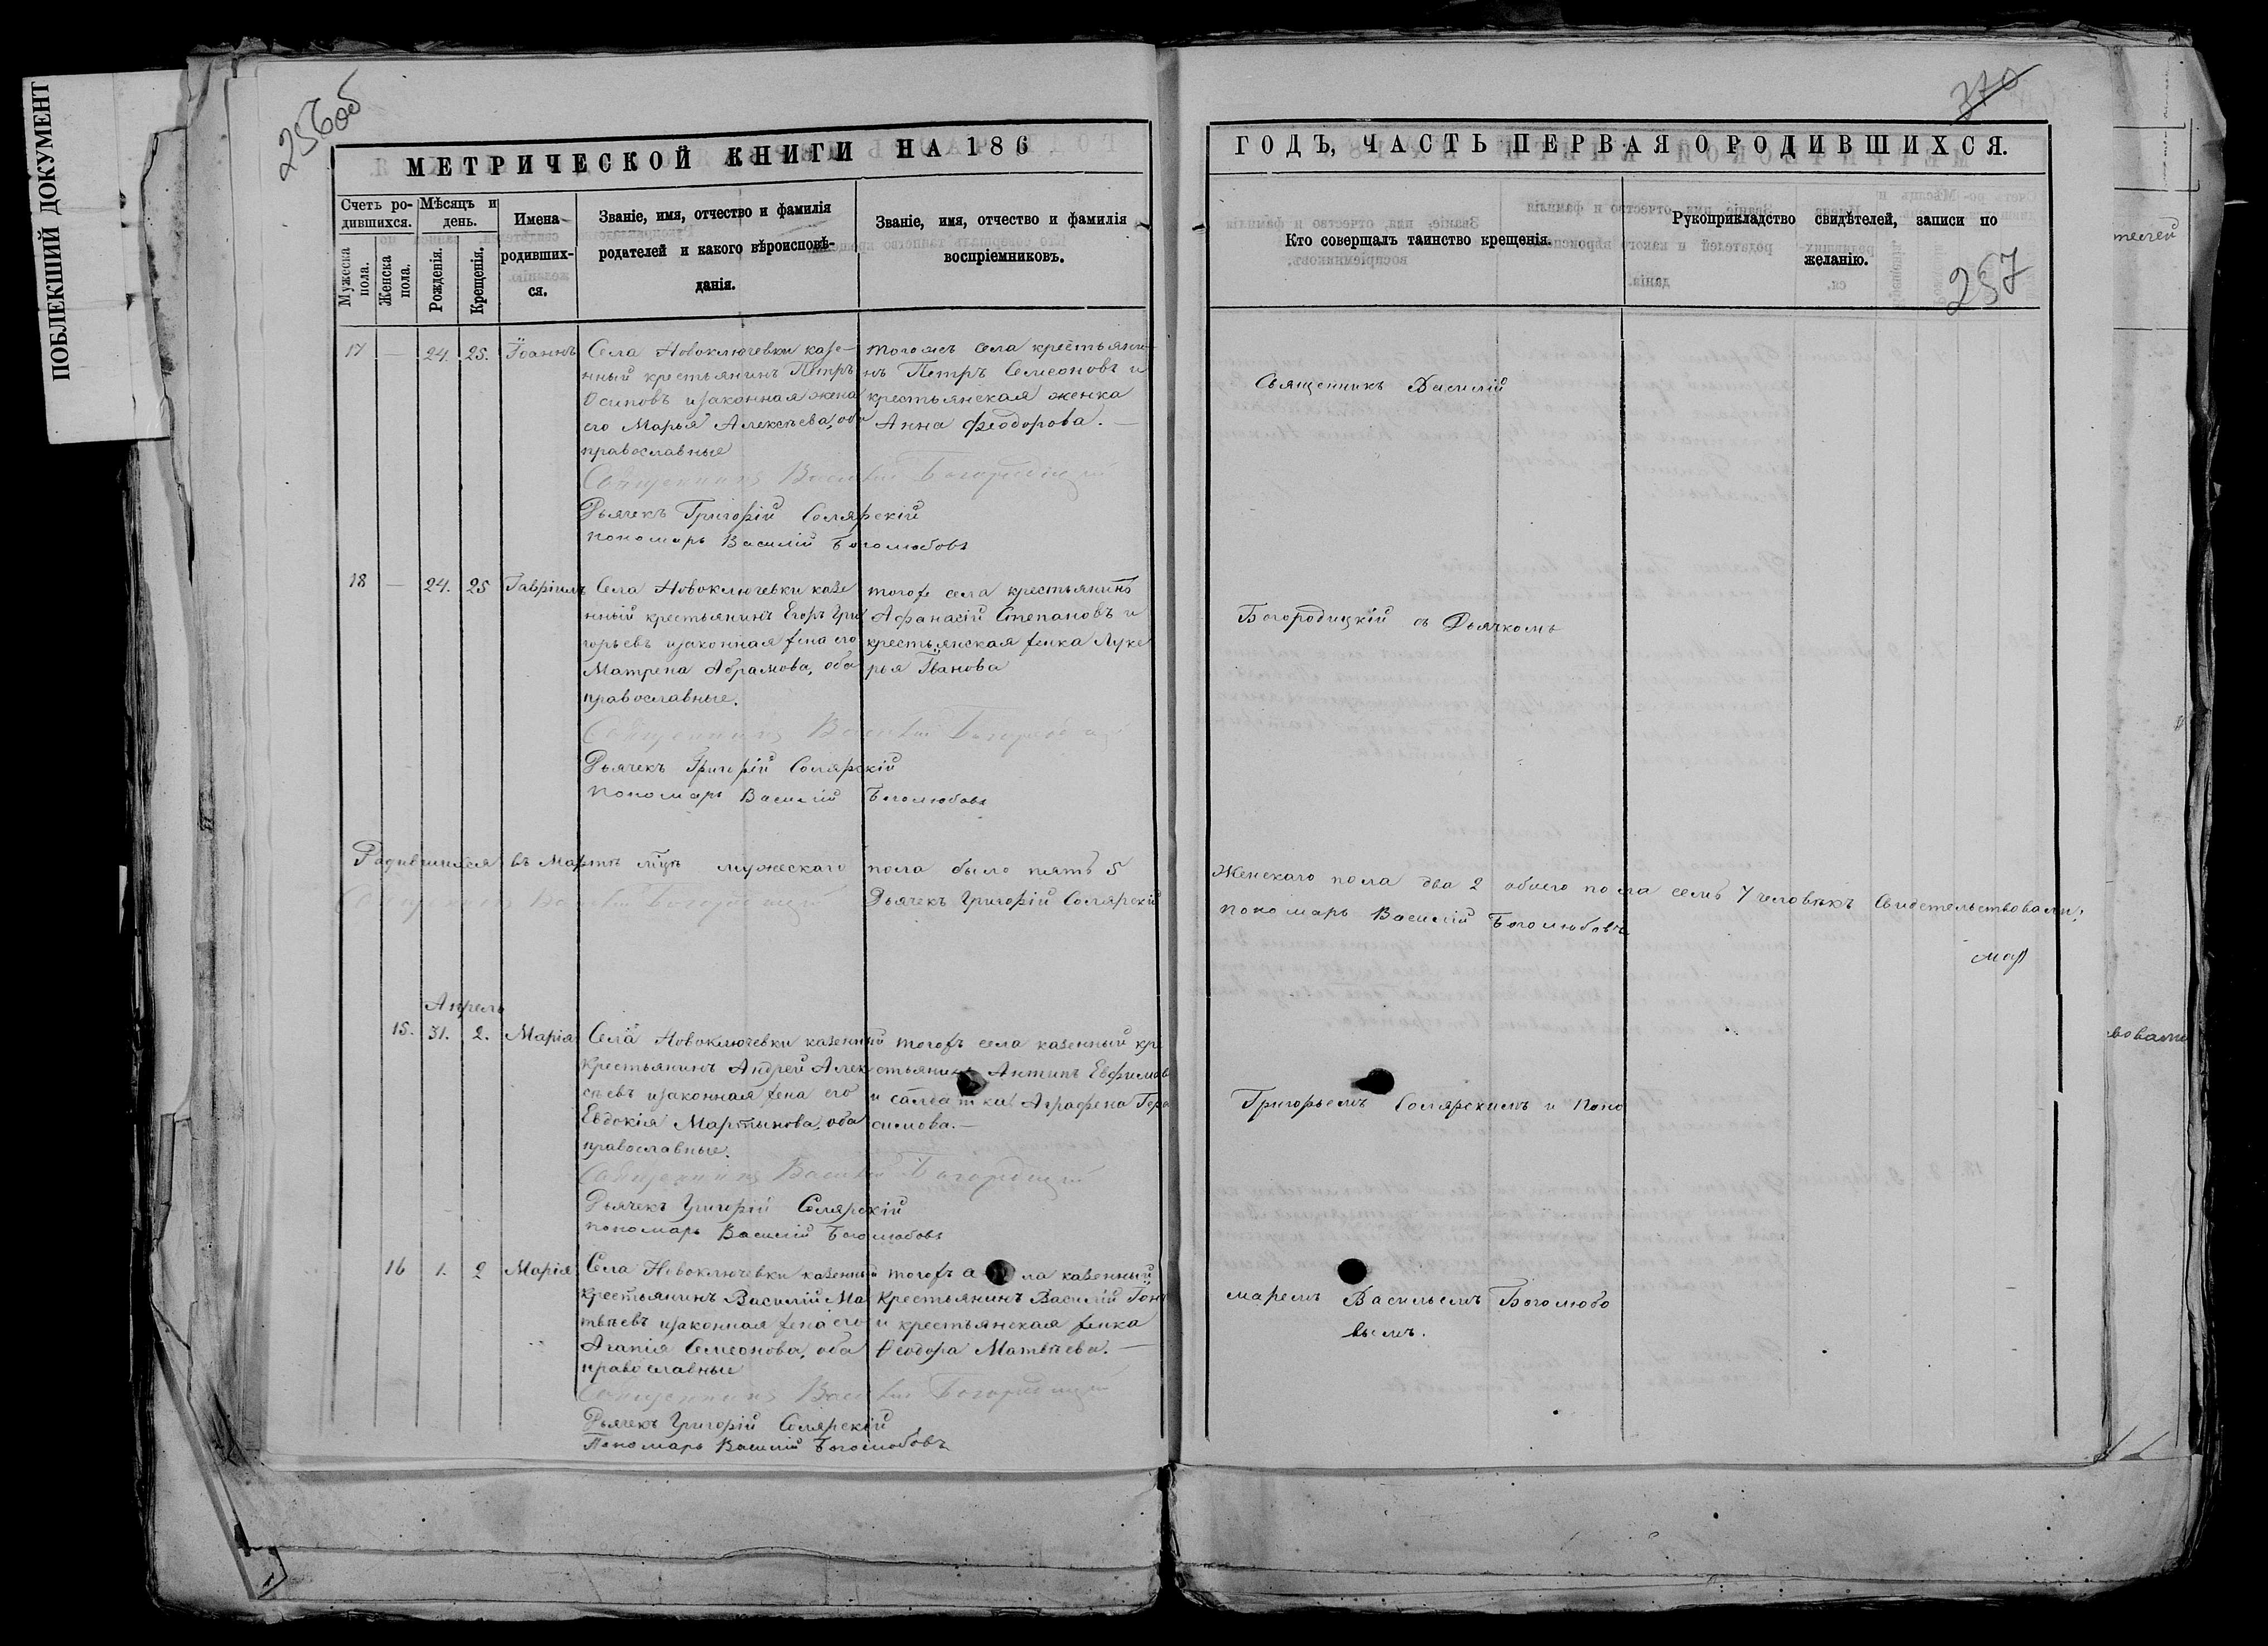 ПОБЛЕКШИЙ ДОКУМЕНТ
256об
МЕТРИЧЕСКОЙ КНИГИ НА 186
Счетъ ро-
дившихся.
Мужеска
пола.
Женска
пола.
Мѣсяцъ и
день.
Рожденія.
Крещенія.
Имена
родивших-
ся.
Званіе, имя, отчество и фамилія
родителей и какого вѣроисповѣ-
данія.
Званіе, имя, отчество и фамилія
воспріемниковъ.
17 — 24. 25. Іоаннъ
Села Новоключевки казе-
нный крестьянинъ Петръ
Осиповъ и законная жена
его Марья Алексѣева, оба
православные
тогожъ села крестьяни-
нъ Петръ Семеоновъ и
крестьянская женка
Анна Феодорова. —
Священникъ Василій Богородицкій
Дьячекъ Григорій Солярскій
пономарь Василій Боголюбовъ
18 — 24. 25 Гавріилъ
Села Новоключевки казе
нный крестьянинъ Егоръ Гри
горьевъ и законная жена его
Матрена Абрамова, оба
православные.
тогоже села крестьянинъ
Афанасій Степановъ и
крестьянская женка Луке
рья Іванова
Священникъ Василій Богородицкій
Дьячекъ Григорій Солярскій
пономарь Василій Боголюбовъ
Родившихся въ Мартѣ мцѣ мужескаго пола было пять 5
Священникъ Василій Богородицкій Дьячекъ Григорій Солярскій
Апрель
15. 31. 2. Марія
Села Новоключевки казенный
крестьянинъ Андрей Алек
сѣевъ и законная жена его
Евдокія Мартынова, оба
православные.
тогожъ села казенный кре
стьянинъ Антипъ Евфимов
и салдатка Аграфена Гера
симова. —
Священникъ Василій Богородицкій
Дьячекъ Григорій Солярскій
пономарь Василій Боголюбовъ
16 1. 2 Марія
Села Новоключевки казенный
крестьянинъ Василій Ма
твѣевъ и законная жена его
Агапія Семеонова, оба
православные
тогожъ ла казенный
крестьянинъ Василій
и крестьянская женка
Ѳеодора Матвѣева. —
Священникъ Василій Богородицкій
Дьячекъ Григорій Солярскій
Пономарь Василій Боголюбовъ
370
ГОДЪ, ЧАСТЬ ПЕРВАЯ О РОДИВШИХСЯ.
Кто совершалъ таинство крещенія.
Рукоприкладство свидѣтелей, записи по
желанію.
257
Священникъ Василій
Богородицкій съ Дьячкомъ
Женскаго пола два 2 обоего пола семь 7 человѣкъ Свидетельствовали:
пономарь Василій Боголюбовъ
Григорьемъ Солярскимъ и Поно
маремъ Васильемъ Боголюбо
вымъ.